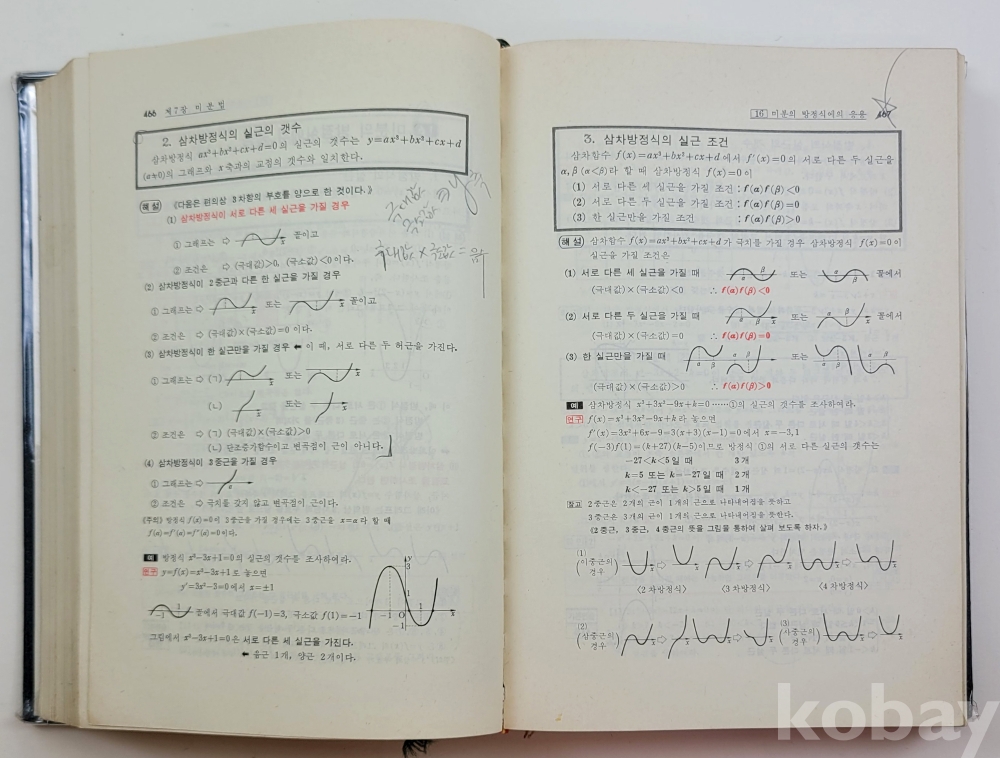 466 제7장 미분법
2. 삼차방정식의 실근의 갯수
삼차방정식 ax³+bx²+cx+d=0의 실근의 갯수는 y=ax³+bx²+cx+d
(a≠0)의 그래프와 x축과의 교점의 갯수와 일치한다.
해설 《다음은 편의상 3차항의 부호를 양으로 한 것이다.》
(1) 삼차방정식이 서로 다른 세 실근을 가질 경우
① 그래프는 ⇨ 꼴이고
② 조건은 ⇨ (극대값)>0, (극소값)<0이다.
극대값
극소값
극대값×극소값=음수
(2) 삼차방정식이 2중근과 다른 한 실근을 가질 경우
① 그래프는 ⇨ 또는 꼴이고
② 조건은 ⇨ (극대값)×(극소값)=0 이다.
(3) 삼차방정식이 한 실근만을 가질 경우 ⬅ 이 때, 서로 다른 두 허근을 가진다.
① 그래프는 ⇨ (ㄱ) 또는
(ㄴ) 또는
② 조건은 ⇨ (ㄱ) (극대값)×(극소값)>0
(ㄴ) 단조증가함수이고 변곡점이 근이 아니다.
(4) 삼차방정식이 3중근을 가질 경우
① 그래프는 ⇨
② 조건은 ⇨ 극치를 갖지 않고 변곡점이 근이다.
《주의》 방정식 f(x)=0이 3중근을 가질 경우에는 3중근을 x=α라 할 때
f(α)=f′(α)=f″(α)=0이다.
예 방정식 x³−3x+1=0의 실근의 갯수를 조사하여라.
연구 y=f(x)=x³−3x+1로 놓으면
y′=3x²−3=0에서 x=±1
−1 1 꼴에서 극대값 f(−1)=3, 극소값 f(1)=−1
y 3 1 −1 O 1 x −1
그림에서 x³−3x+1=0은 서로 다른 세 실근을 가진다.
⬅ 음근 1개, 양근 2개이다.
16 미분의 방정식에의 응용 467
3. 삼차방정식의 실근 조건
삼차함수 f(x)=ax³+bx²+cx+d에서 f′(x)=0의 서로 다른 두 실근을
α, β (α<β)라 할 때 삼차방정식 f(x)=0이
(1) 서로 다른 세 실근을 가질 조건 : f(α)f(β)<0
(2) 서로 다른 두 실근을 가질 조건 : f(α)f(β)=0
(3) 한 실근만을 가질 조건 : f(α)f(β)>0
해설 삼차함수 f(x)=ax³+bx²+cx+d가 극치를 가질 경우 삼차방정식 f(x)=0이
실근을 가질 조건은
(1) 서로 다른 세 실근을 가질 때 α β x 또는 α β x 꼴에서
(극대값)×(극소값)<0 ∴ f(α)f(β)<0
(2) 서로 다른 두 실근을 가질 때 α β x 또는 α β x 꼴에서
(극대값)×(극소값)=0 ∴ f(α)f(β)=0
(3) 한 실근만을 가질 때 α β α β x 또는 α β α β x
(극대값)×(극소값)>0 ∴ f(α)f(β)>0
예 삼차방정식 x³+3x²−9x+k=0 ……①의 실근의 갯수를 조사하여라.
연구 f(x)=x³+3x²−9x+k라 놓으면
f′(x)=3x²+6x−9=3(x+3)(x−1)=0에서 x=−3, 1
f(−3)f(1)=(k+27)(k−5)이므로 방정식 ①의 서로 다른 실근의 갯수는
−27<k<5일 때 3개
k=5 또는 k=−27일 때 2개
k<−27 또는 k>5일 때 1개
참고 2중근은 2개의 근이 1개의 근으로 나타내어짐을 뜻하고
3중근은 3개의 근이 1개의 근으로 나타내어짐을 뜻한다.
《2중근, 3중근, 4중근의 뜻을 그림을 통하여 살펴 보도록 하자.》
(1)
(이중근의 경우)
〈2차방정식〉 〈3차방정식〉 〈4차방정식〉
(2)
(삼중근의 경우)
(3)
(사중근의 경우)
kobay